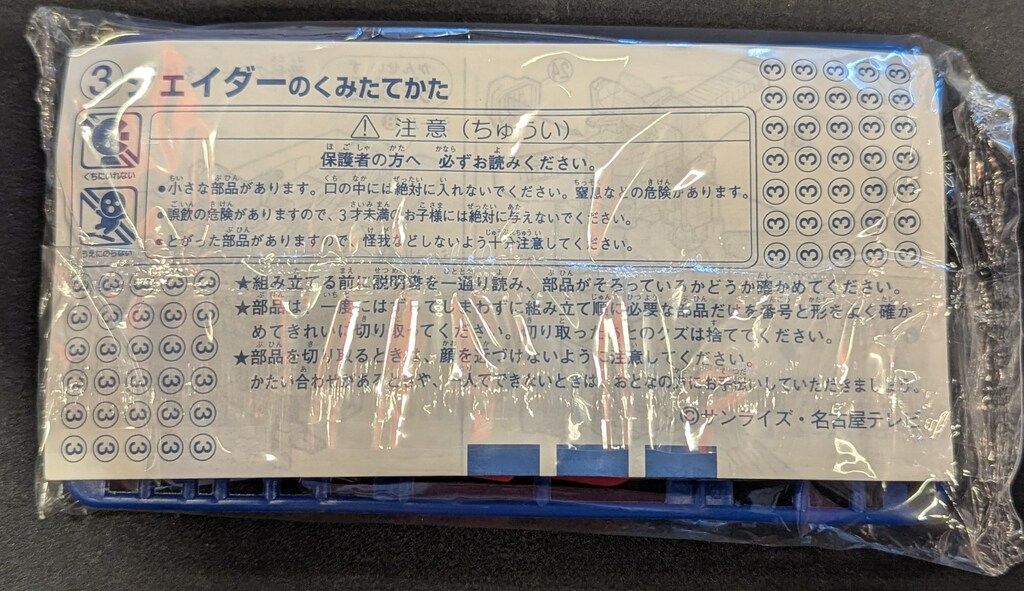 ③ジェイダーのくみたてかた
くちにいれない
うえにのらない
⚠ 注意（ちゅうい）
保護者の方へ 必ずお読みください。
●小さな部品があります。口の中には絶対に入れないでください。窒息などの危険があります。
●誤飲の危険がありますので、3才未満のお子様には絶対に与えないでください。
●とがった部品がありますので、怪我などしないよう十分注意してください。
★組み立てる前に説明書を一通り読み、部品がそろっているかどうか確かめてください。
★部品は、一度にはずしてしまわずに組み立て順に必要な部品だけを番号と形をよく確か
めてきれいに切り取ってください。切り取ったあとのクズは捨ててください。
★部品を切り取るときは、顔を近づけないように注意してください。
かたい合わせがあるところや、一人でできないときは、おとなの方にお手伝いしていただきましょう。
©サンライズ・名古屋テレビ